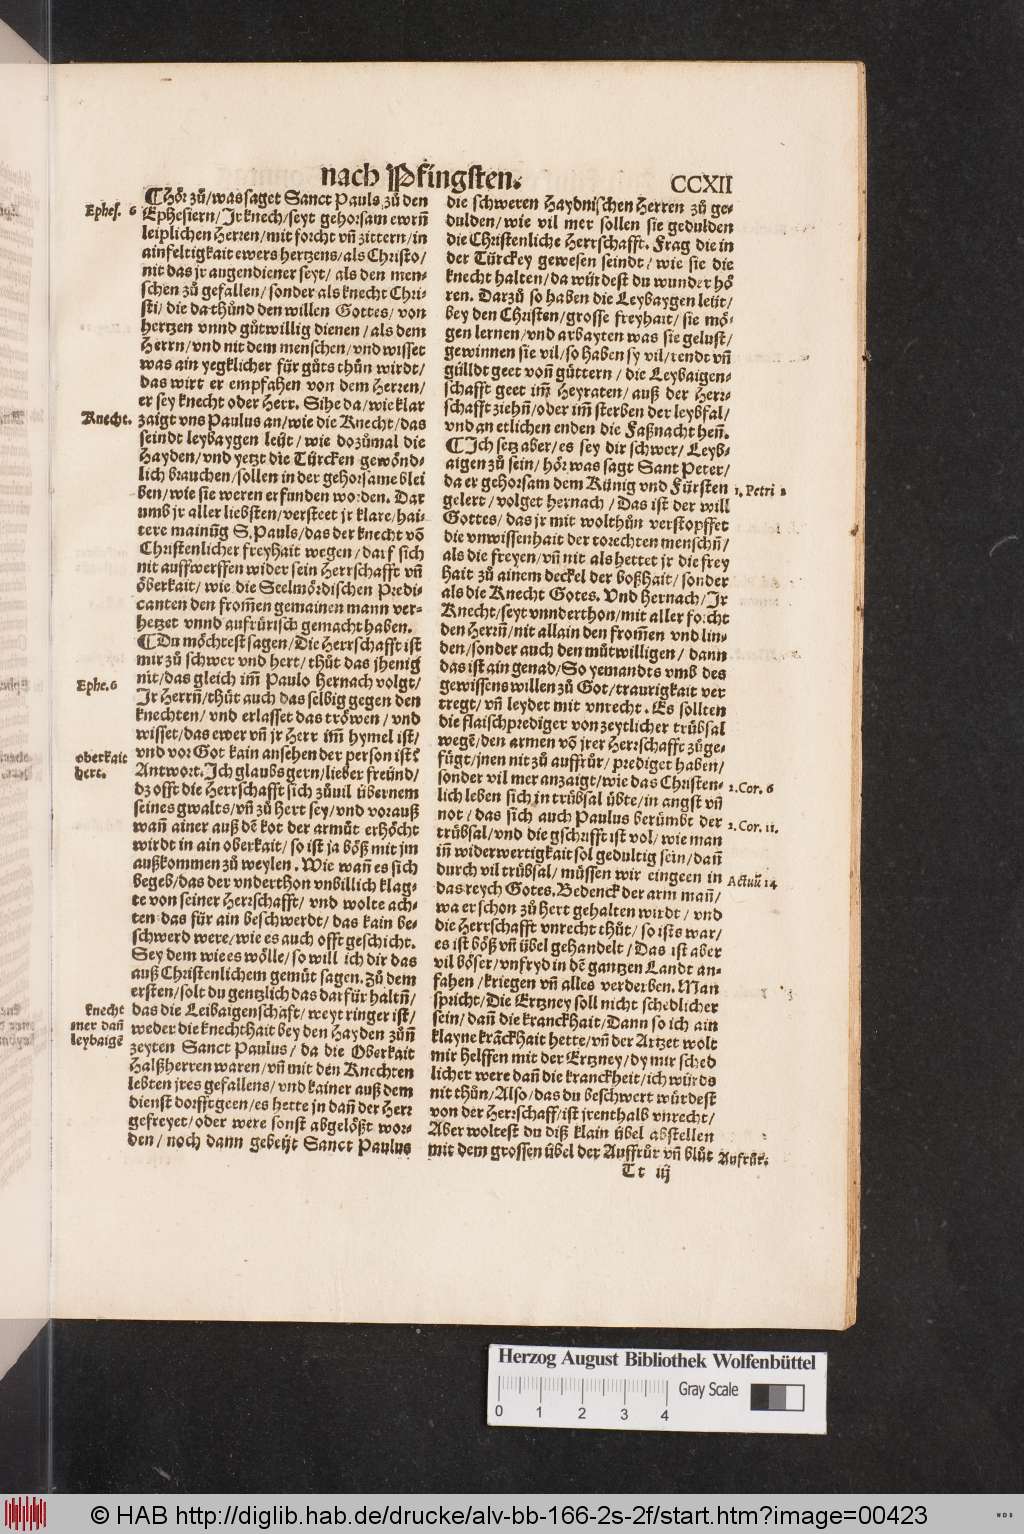 nach Pfingsten.
CCXII
¶Hör zů/was saget Sanct Pauls zů den
Ephes. 6
Ephesiern/Jr knech/seyt gehorsam ewrñ
leiplichen Herren/mit forcht vñ zittern/in
ainfeltigkait ewers hertzens/als Christo/
nit das jr augendiener seyt/als den men-
schen zů gefallen/sonder als knecht Chri-
sti/die da thůnd den willen Gottes/von
hertzen vnnd gůtwillig dienen/als dem
Herrn/vnd nit dem menschen/vnd wisset
was ain yegklicher für gůts thůn wirdt/
das wirt er empfahen von dem Herren/
er sey knecht oder Herr. Sihe da/wie klar
Knecht.
zaigt vns Paulus an/wie die Knecht/das
seindt leybaygen leüt/wie dozůmal die
Hayden/vnd yetzt die Türcken gewönd-
lich brauchen/sollen in der gehorsame blei
ben/wie sie weren erfunden worden. Dar
umb jr aller liebsten/versteet jr klare/hai-
tere mainũg S. Pauls/das der knecht võ
Christenlicher freyhait wegen/darf sich
nit auffwerffen wider sein Herrschafft vñ
öberkait/wie die Seelmördischen Predi-
canten den from̃en gemainen mann ver-
hetzet vnnd aufrürisch gemacht haben.
¶Du möchtest sagen/Die Herrschafft ist
mir zů schwer vnd hert/thůt das jhenig
Ephe. 6
nit/das gleich im̃ Paulo hernach volgt/
Jr Herrñ/thůt auch das selbig gegen den
knechten/vnd erlasset das tröwen/vnd
wisset/das ewer vñ jr Herr im̃ hymel ist/
oberkait
hert.
vnd vor Got kain ansehen der person ist?
Antwort. Jch glaubs gern/lieber freünd/
dz offt die Herrschafft sich zůuil übernem
seines gwalts/vñ zů hert sey/vnd vorauß
wañ ainer auß dẽ kot der armůt erhöcht
wirdt in ain oberkait/so ist ja böß mit jm
außkommen zů weylen. Wie wañ es sich
begeb/das der vnderthon vnbillich klag-
te von seiner Herrschafft/vnd wolte ach-
ten das für ain beschwerdt/das kain be-
schwerd were/wie es auch offt geschicht.
Sey dem wie es wölle/so will ich dir das
auß Christenlichem gemüt sagen. Zů dem
ersten/solt du gentzlich das darfür haltñ/
knecht
mer dañ
leybaigẽ
das die Leibaigenschafft/weyt ringer ist/
weder die knechthait bey den Hayden zůñ
zeyten Sanct Paulus/da die Oberkait
Halßherren waren/vñ mit den Knechten
lebten jres gefallens/vnd kainer auß dem
dienst dorfft geen/es hette jn dañ der Herr
gefreyet/oder were sonst abgelößt wor-
den/noch dann gebeüt Sanct Paulus
die schweren Haydnischen Herren zů ge-
dulden/wie vil mer sollen sie gedulden
die Christenliche Herrschafft. Frag die in
der Türckey gewesen seindt/wie sie die
knecht halten/da würdest du wunder hö
ren. Darzů so haben die Leybaygen leüt/
bey den Christen/grosse freyhait/sie mö-
gen lernen/vnd arbayten was sie gelust/
gewinnen sie vil/so haben sy vil/rendt vñ
gülldt geet von̄ güttern/die Leybaigen-
schafft geet im̃ Heyraten/auß der Herr-
schafft ziehñ/oder im̃ sterben der leybfal/
vnd an etlichen enden die Faßnacht heñ.
¶Jch setz aber/es sey dir schwer/Leyb-
aigen zů sein/hör was sagt Sant Peter/
da er gehorsam dem Künig vnd Fürsten
1. Petri 2
gelert/volget hernach/Das ist der will
Gottes/das jr mit wolthůn verstopffet
die vnwissenhait der torechten menschñ/
als die freyen/vñ nit als hettet jr die frey
hait zů ainem deckel der boßhait/sonder
als die Knecht Gotes. Vnd hernach/Jr
Knecht/seyt vnnderthon/mit aller forcht
den Herrñ/nit allain den from̃en vnd lin-
den/sonder auch den můtwilligen/dann
das ist ain genad/So yemandts vmb des
gewissens willen zů Got/traurigkait ver
tregt/vñ leydet mit vnrecht. Es sollten
die flaischprediger von zeytlicher trübsal
wegẽ/den armen võ jrer Herrschafft zůge-
fügt/jnen nit zů auffrůr/prediget haben/
sonder vil mer anzaigt/wie das Christen-
2. Cor. 6
lich leben sich in trübsal übte/in angst vñ
not/das sich auch Paulus berümbt der
2. Cor. 11.
trübsal/vnd die gschrifft ist vol/wie man
iñ widerwertigkait sol gedultig sein/dañ
durch vil trübsal/müssen wir eingeen in
Actuũ 14
das reych Gotes. Bedenck der arm mañ/
wa er schon zů hert gehalten wirdt/vnd
die Herrschafft vnrecht thůt/so ists war/
es ist böß vñ übel gehandelt/Das ist aber
vil böser/vnfryd in dẽ gantzen Landt an-
fahen/kriegen vñ alles verderben. Man
spricht/Die Ertzney soll nicht schedlicher
sein/dañ die kranckhait/Dann so ich ain
klayne krãckhait hette/vñ der Artzet wolt
mir helffen mit der Ertzney/dy mir sched
licher were dañ die kranckheit/ich würds
nit thůn/Also/das du beschwert würdest
von der Herrschaff/ist jrenthalb vnrecht/
Aber woltest du diß klain übel abstellen
mit dem grossen übel der Auffrůr vñ blůt
Aufrůr.
Tt iij
Herzog August Bibliothek Wolfenbüttel
Gray Scale
0 1 2 3 4
© HAB http://diglib.hab.de/drucke/alv-bb-166-2s-2f/start.htm?image=00423